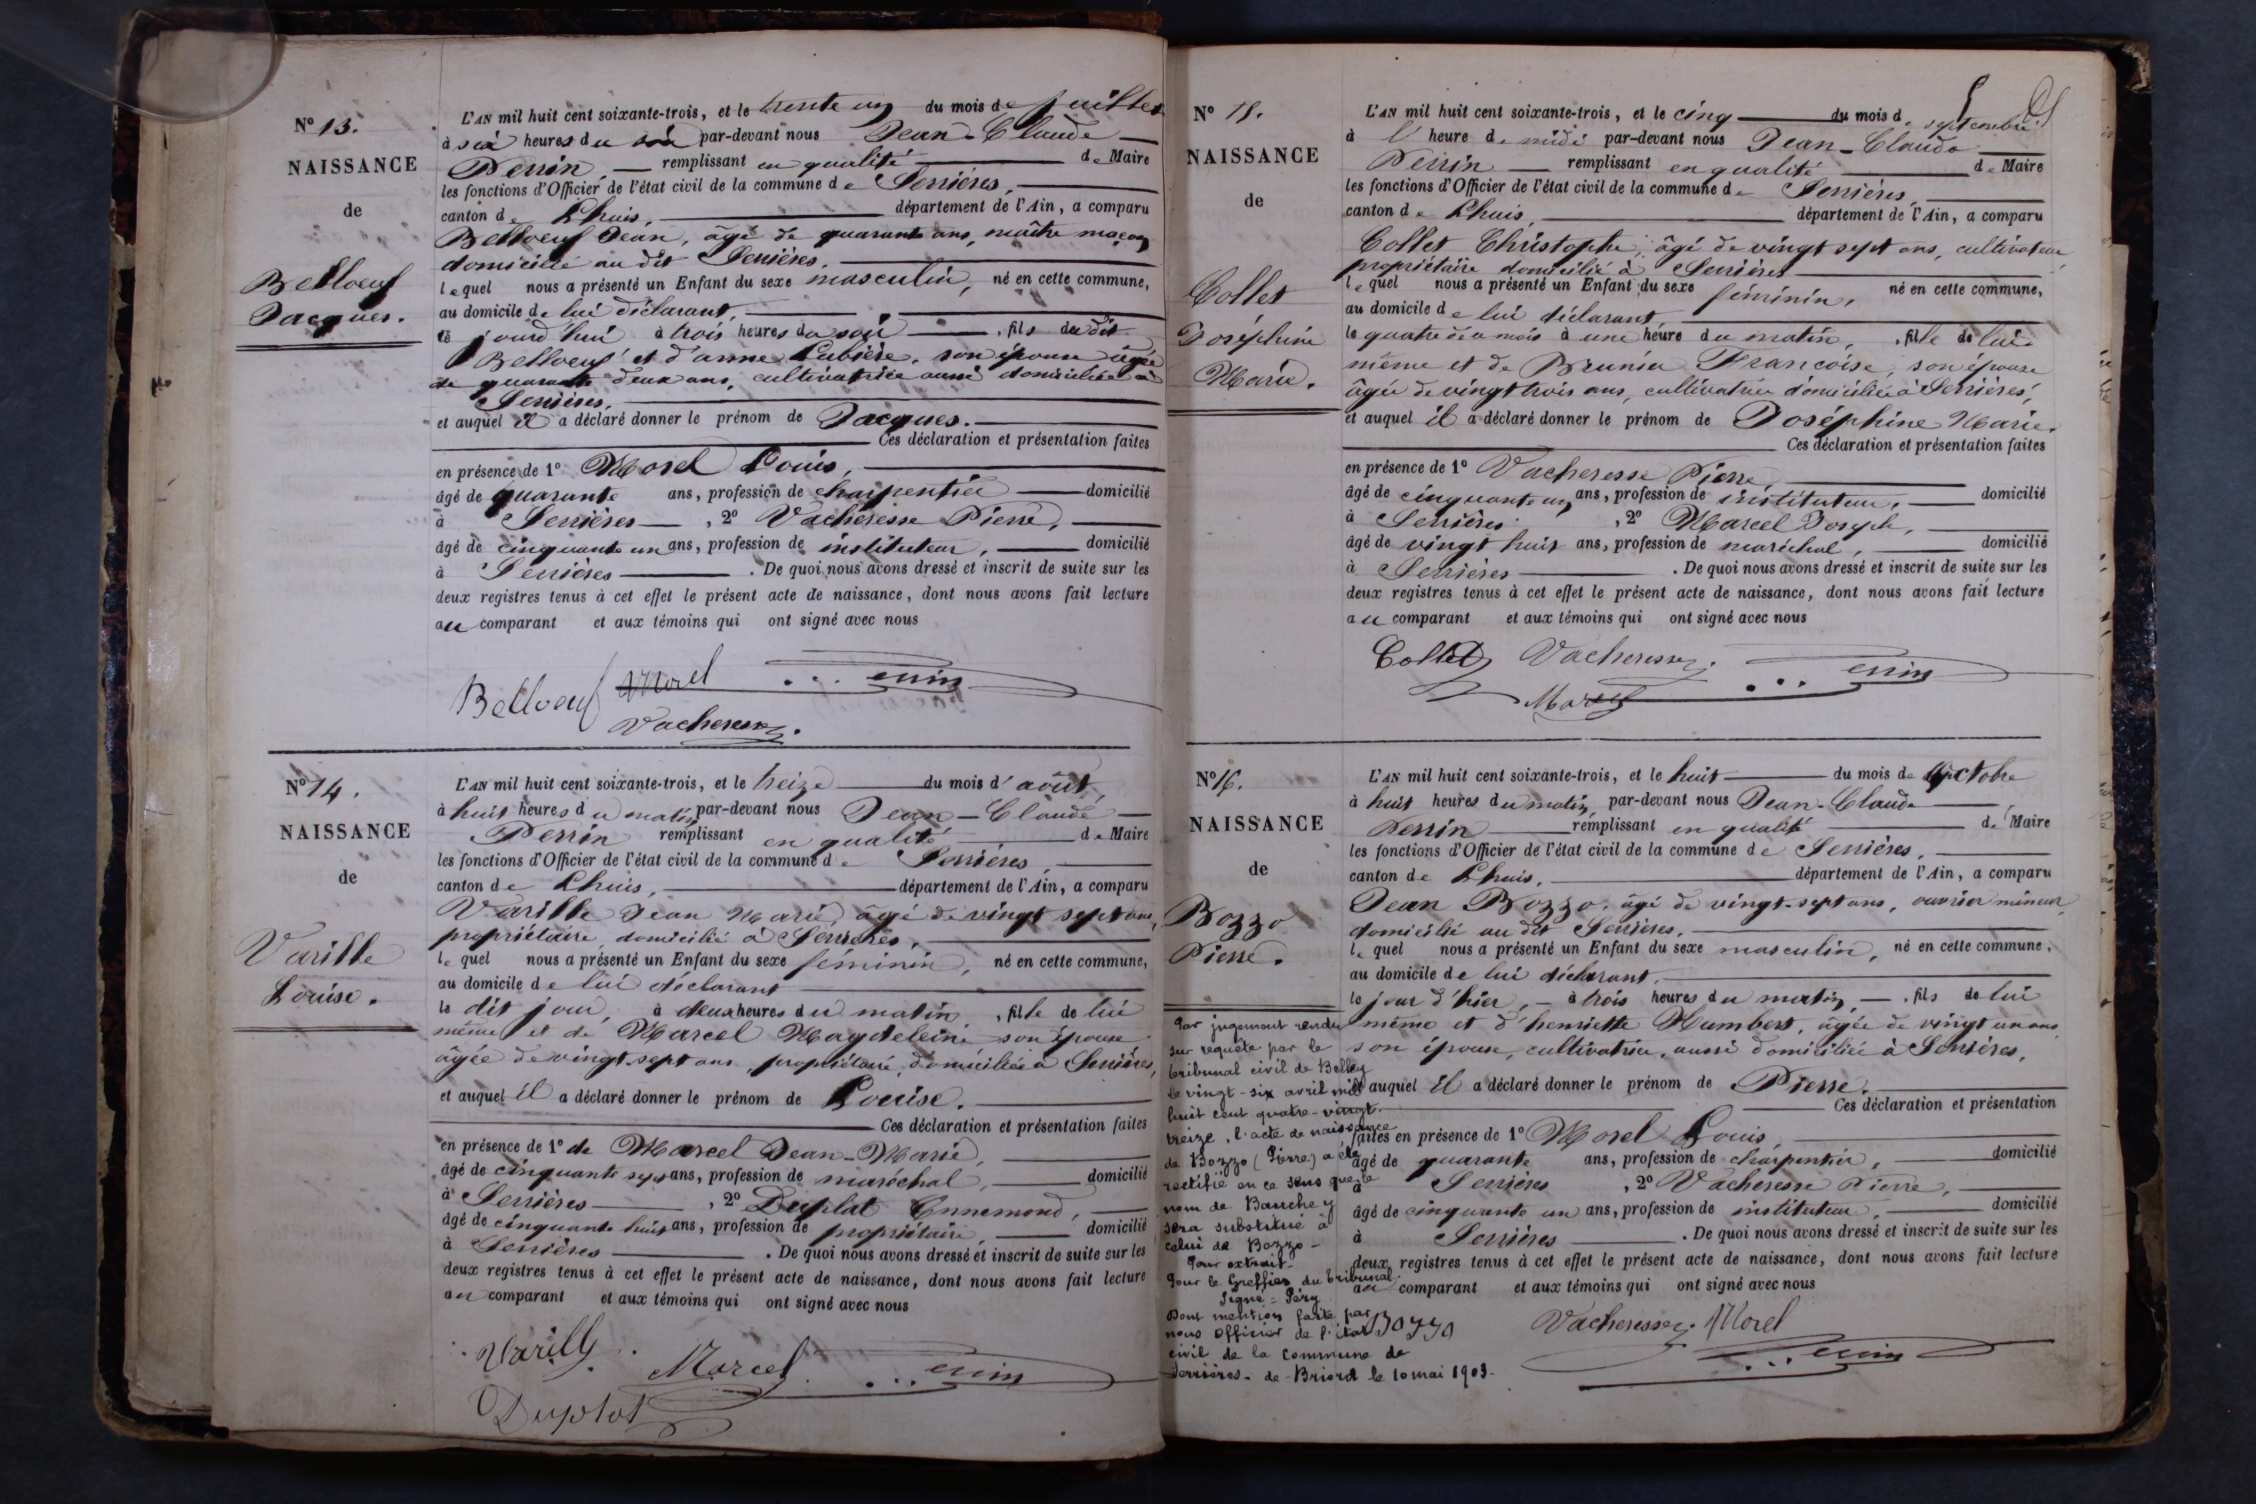 N° 13.
NAISSANCE
de
Belloeuf
Jacques.
L'AN mil huit cent soixante-trois, et le trente un du mois de juillet
à six heures du soir par-devant nous Jean-Claude
Perrin, remplissant en qualité de Maire
les fonctions d'Officier de l'état civil de la commune de Serrières,
canton de Lhuis, département de l'Ain, a comparu
Belloeuf Jean, âgé de quarante ans, maître maçon
domicilié au dit Serrières,
lequel nous a présenté un Enfant du sexe masculin, né en cette commune,
au domicile de lui déclarant,
ce jourd'hui à trois heures du soir, fils du dit
Belloeuf et d'anne Lubière, son épouse âgée
de quarante deux ans, cultivatrice aussi domiciliée à
Serrières,
et auquel il a déclaré donner le prénom de Jacques.
Ces déclaration et présentation faites
en présence de 1° Morel Louis,
âgé de quarante ans, profession de charpentier domicilié
à Serrières, 2° Vacheresse Pierre,
âgé de cinquante un ans, profession de instituteur, domicilié
à Serrières. De quoi nous avons dressé et inscrit de suite sur les
deux registres tenus à cet effet le présent acte de naissance, dont nous avons fait lecture
au comparant et aux témoins qui ont signé avec nous
Belloeuf Morel Perrin
Vacheresse.
N° 14.
NAISSANCE
de
Varille
Louise.
L'AN mil huit cent soixante-trois, et le treize du mois d'août,
à huit heures du matin par-devant nous Jean-Claude
Perrin remplissant en qualité de Maire
les fonctions d'Officier de l'état civil de la commune de Serrières,
canton de Lhuis, département de l'Ain, a comparu
Varille Jean Marie, âgé de vingt sept ans,
propriétaire, domicilié à Serrières,
lequel nous a présenté un Enfant du sexe féminin, né en cette commune,
au domicile de lui déclarant
le dit jour, à deux heures du matin, fille de lui
même et de Marcel Magdeleine son épouse
âgée de vingt-sept ans, propriétaire, domiciliée à Serrières,
et auquel il a déclaré donner le prénom de Louise.
Ces déclaration et présentation faites
en présence de 1° de Marcel Jean-Marie,
âgé de cinquante sept ans, profession de maréchal, domicilié
à Serrières, 2° Duplat Ennemond,
âgé de cinquante huit ans, profession de propriétaire, domicilié
à Serrières. De quoi nous avons dressé et inscrit de suite sur les
deux registres tenus à cet effet le présent acte de naissance, dont nous avons fait lecture
au comparant et aux témoins qui ont signé avec nous
Varille Marcel Perrin
Duplat
N° 15.
NAISSANCE
de
Collet
Joséphine
Marie.
L'AN mil huit cent soixante-trois, et le cinq du mois de septembre
à l'heure de midi par-devant nous Jean-Claude
Perrin remplissant en qualité de Maire
les fonctions d'Officier de l'état civil de la commune de Serrières,
canton de Lhuis, département de l'Ain, a comparu
Collet Christophe, âgé de vingt sept ans, cultivateur
propriétaire domicilié à Serrières
lequel nous a présenté un Enfant du sexe féminin, né en cette commune,
au domicile de lui déclarant
le quatre du mois à une heure du matin, fille de lui
même et de Brunier Françoise, son épouse
âgée de vingt trois ans, cultivatrice domiciliée à Serrières,
et auquel il a déclaré donner le prénom de Joséphine Marie.
Ces déclaration et présentation faites
en présence de 1° Vacheresse Pierre,
âgé de cinquante un ans, profession de instituteur, domicilié
à Serrières, 2° Marcel Joseph,
âgé de vingt huit ans, profession de maréchal, domicilié
à Serrières. De quoi nous avons dressé et inscrit de suite sur les
deux registres tenus à cet effet le présent acte de naissance, dont nous avons fait lecture
au comparant et aux témoins qui ont signé avec nous
Collet Vacheresse. Perrin
Marcel
N° 16.
NAISSANCE
de
Bozzo
Pierre.
Par jugement rendu
sur requête par le
tribunal civil de Belley
le vingt-six avril mil
huit cent quatre-vingt
treize, l'acte de naissance
de Bozzo (Pierre) a été
rectifié en ce sens que le
nom de Bauchey
sera substitué à
celui de Bozzo-
Pour extrait-
Pour le Greffier du tribunal.
Signé = Péry
Dont mention faite par
nous Officier de l'état
civil de la commune de
Serrières-de-Briord le 10 mai 1903-
L'AN mil huit cent soixante-trois, et le huit du mois de octobre
à huit heures du matin, par-devant nous Jean-Claude
Perrin remplissant en qualité de Maire
les fonctions d'Officier de l'état civil de la commune de Serrières,
canton de Lhuis, département de l'Ain, a comparu
Jean Bozzo, âgé de vingt-sept ans, ouvrier mineur,
domicilié au dit Serrières,
lequel nous a présenté un Enfant du sexe masculin, né en cette commune,
au domicile de lui déclarant,
le jour d'hier, à trois heures du matin, fils de lui
même et d'henriette Humbert, âgée de vingt un ans
son épouse, cultivatrice, aussi domiciliée à Serrières,
et auquel il a déclaré donner le prénom de Pierre.
Ces déclaration et présentation
faites en présence de 1° Morel Louis,
âgé de quarante ans, profession de charpentier, domicilié
à Serrières, 2° Vacheresse Pierre,
âgé de cinquante un ans, profession de instituteur, domicilié
à Serrières. De quoi nous avons dressé et inscrit de suite sur les
deux registres tenus à cet effet le présent acte de naissance, dont nous avons fait lecture
au comparant et aux témoins qui ont signé avec nous
Bozzo Vacheresse. Morel
Perrin